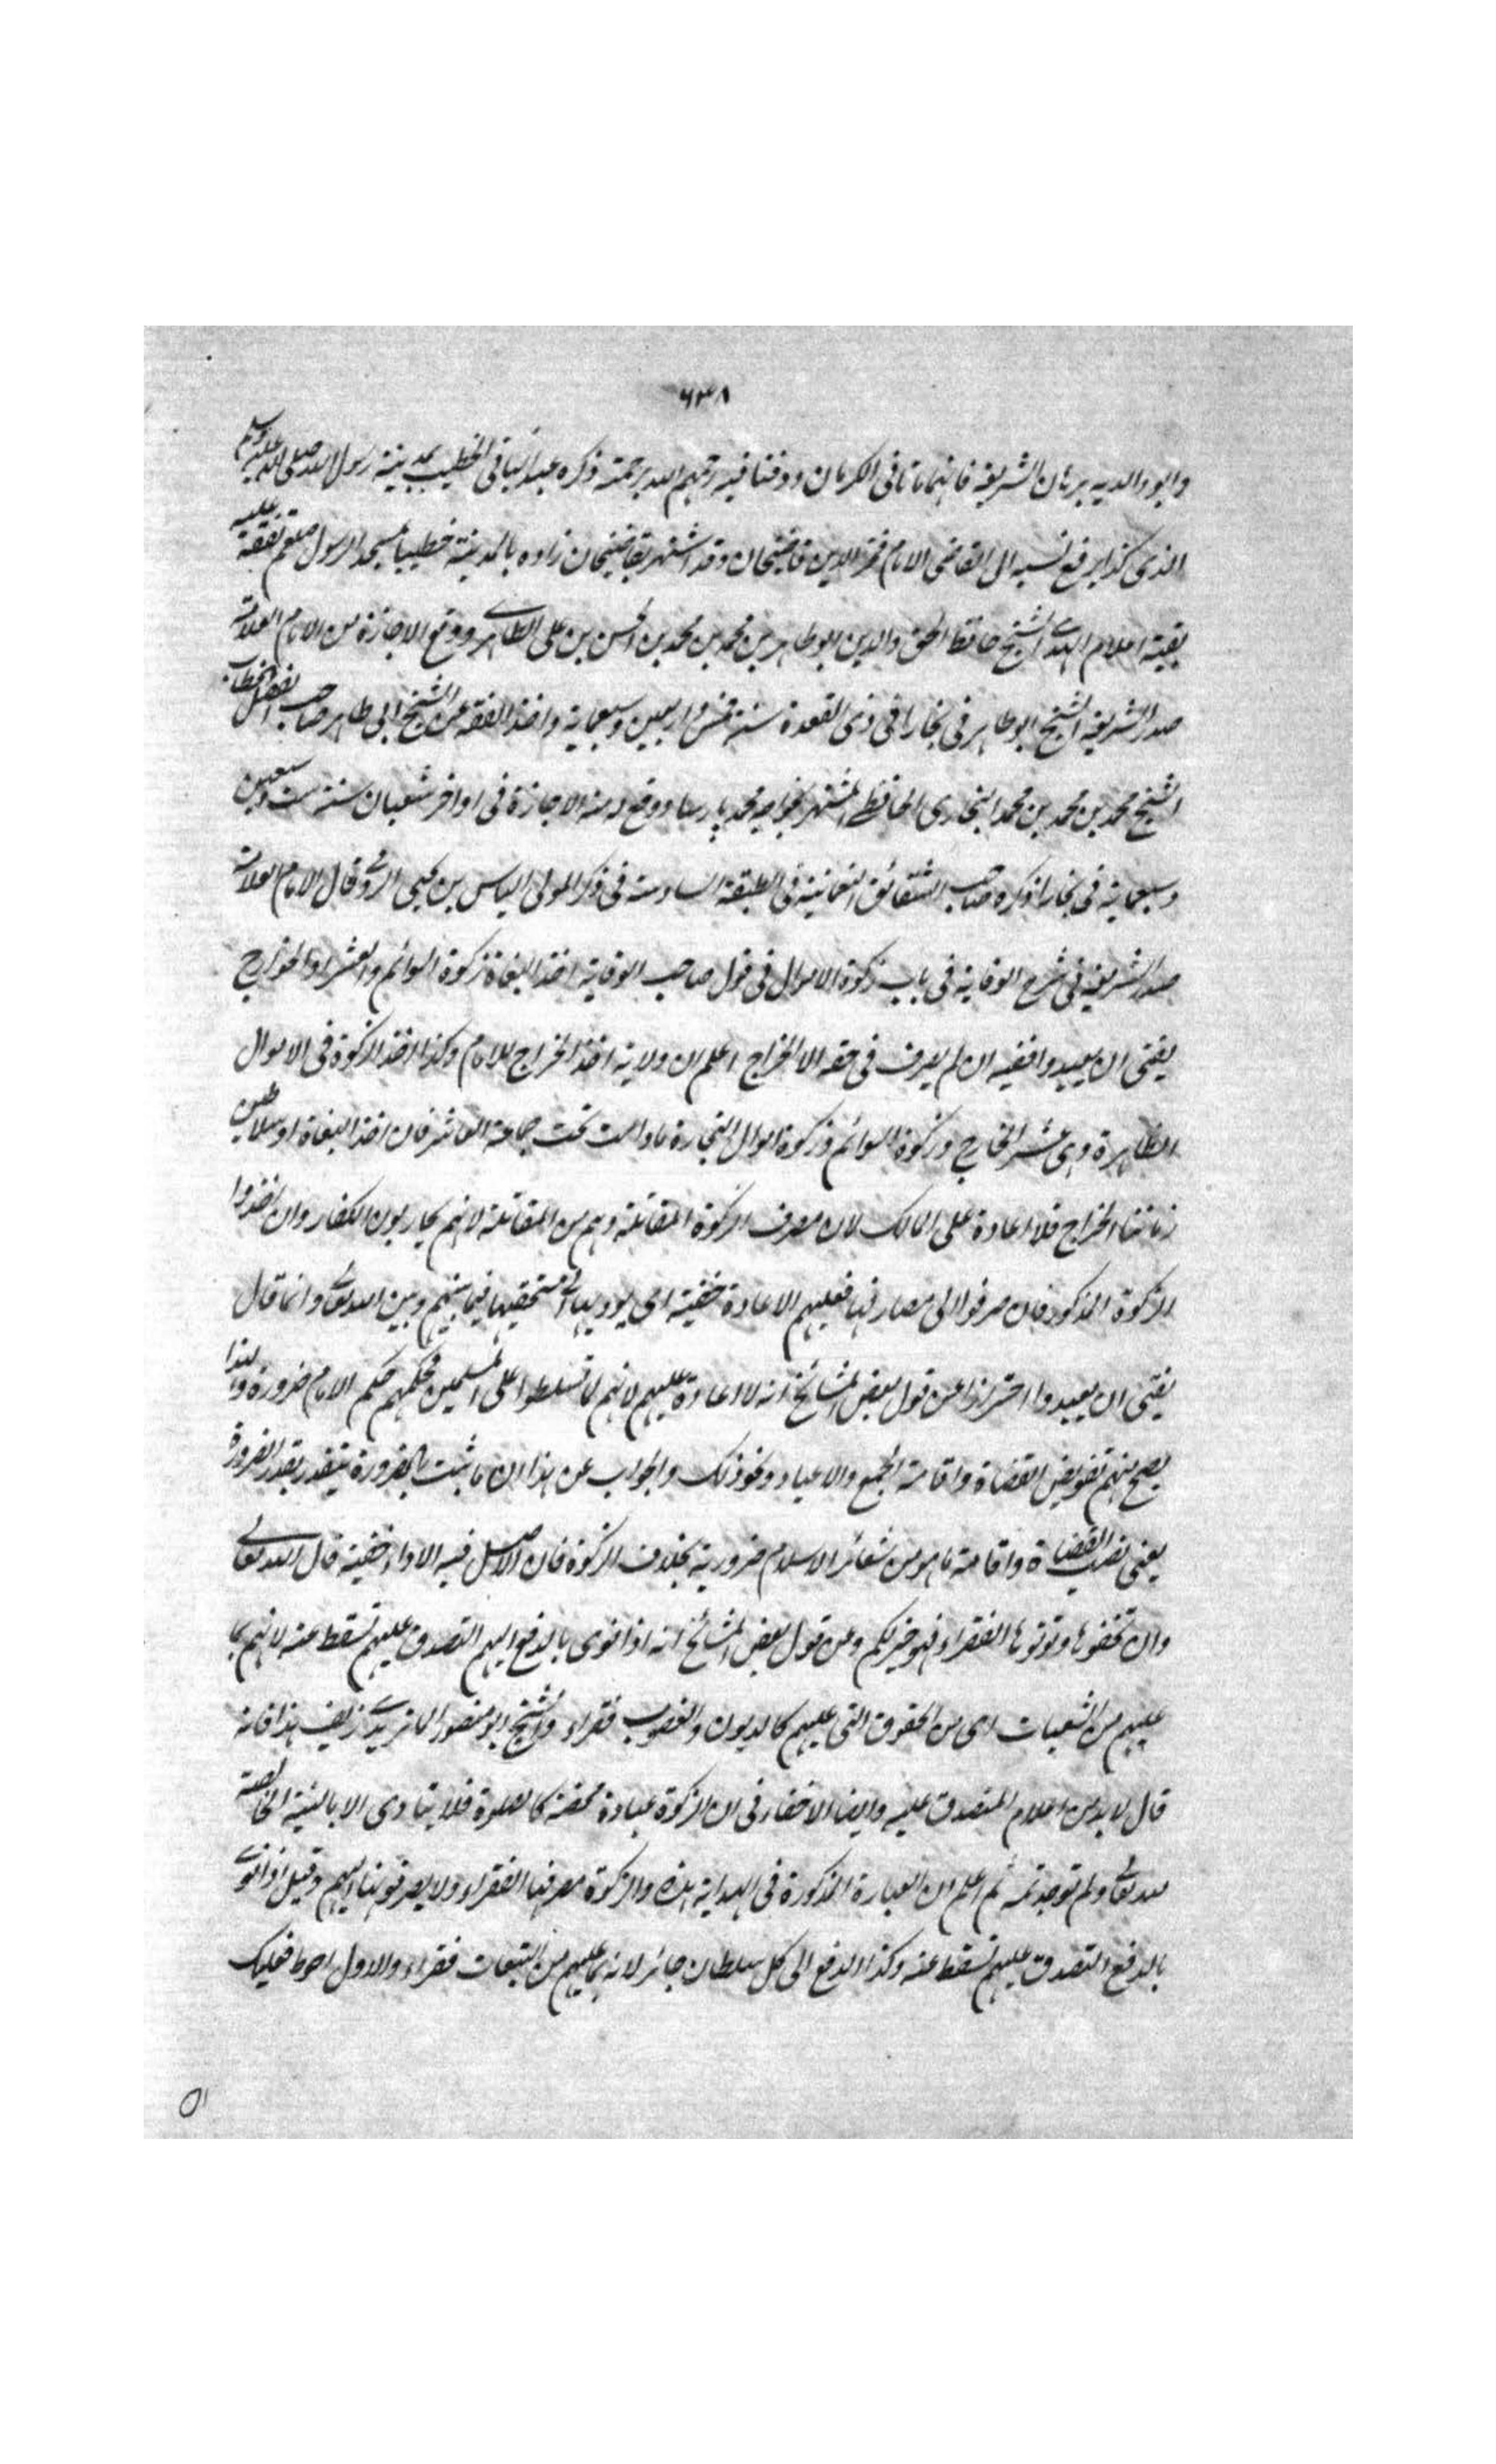 ٦٣٨
وابو والديه برهان الشريعة فانهما ماتا فى الكرمان ودفنا فيه رحمهم الله برحمته ذكره عبد الباقى الخطيب بمدينة رسول الله صلى الله عليه وسلم
الذى كذا يرفع نسبه الى القاضى الامام فخر الدين قاضيخان وقد اشتهر بقاضيخان زاده بالمدينة خطيبا بمسجد الرسول صلعم تفقه عليه
بقية اعلام الهدى الشيخ حافظ الحق والدين ابو طاهر بن محمد بن محمد بن الحسن بن على الطاهرى ووقع الاجازة من الامام العلامة
صدر الشريعة الشيخ ابو طاهر فى بخارا فى ذى القعدة سنة خمس واربعين وسبعماية واخذ الفقه عن الشيخ ابى طاهر صاحب فصل الخطاب
الشيخ محمد بن محمد بن محمد البخارى الحافظى المشتهر بخواجه محمد پارسا ووقع له منه الاجازة فى اواخر شعبان سنة ست وسبعين
وسبعماية فى بخارا ذكره صاحب الشقائق النعمانية فى الطبقة السادسة فى ذكر المولى الياس بن يحيى الرومى قال الامام العلامة
صدر الشريعة فى شرح الوقاية فى باب زكوة الاموال فى قول صاحب الوقاية اخذ البغاة زكوة السوائم والعشر او الخراج
يفتى ان يعيدوا خفية ان لم يصرف فى حقه الا الخراج اعلم ان ولاية اخذ الخراج للامام وكذا اخذ الزكوة فى الاموال
الظاهرة وهى عشر الخارج وزكوة السوائم وزكوة اموال التجارة ما دامت تحت حماية العاشر فان اخذ البغاة او سلاطين
زماننا الخراج فلا اعادة على المالك لان مصرف الزكوة المقاتلة وهم من المقاتلة لانهم يحاربون الكفار وان اخذوا
الزكوة المذكورة فان صرفوا الى مصارفها فعليهم الاعادة خفية اى يؤدونها الى مستحقيها فيما بينهم وبين الله تعالى وانما قال
يفتى ان يعيدوا احترازا عن قول بعض المشائخ انه لا اعادة عليهم لانهم لما تسلطوا على المسلمين فحكمهم حكم الامام ضرورة ولهذا
يصح منهم تفويض القضاة واقامة الجمع والاعياد ونحو ذلك والجواب عن هذا ان ما ثبت بالضرورة يتقدر بقدر الضرورة
يعنى نصب القضاة واقامة ما هو من شعائر الاسلام ضرورية بخلاف الزكوة فان الاصل فيه الاداء خفية قال الله تعالى
وان تخفوها وتؤتوها الفقراء فهو خير لكم وعن قول بعض المشائخ انه اذا نوى بالدفع اليهم التصدق عليهم تسقط عنه لانهم بما
عليهم من التبعات اى من الحقوق التى عليهم كالديون والغصوب فقراء والشيخ ابو منصور الماتريدى زيف هذا فانه
قال لا بد من اعلام المتصدق عليه وايضا لا خفاء فى ان الزكوة عبادة محضة كالصلوة فلا يتادى الا بالنية الخالصة
لله تعالى ولم توجد ثمه ثم اعلم ان العبارة المذكورة فى الهداية هذه والزكوة مصرفها الفقراء ولا يصرفونها اليهم وقيل اذا نوى
بالدفع التصدق عليهم تسقط عنه وكذا الدفع الى كل سلطان جائر لانه بما عليهم من التبعات فقراء والاول احوط فعليك